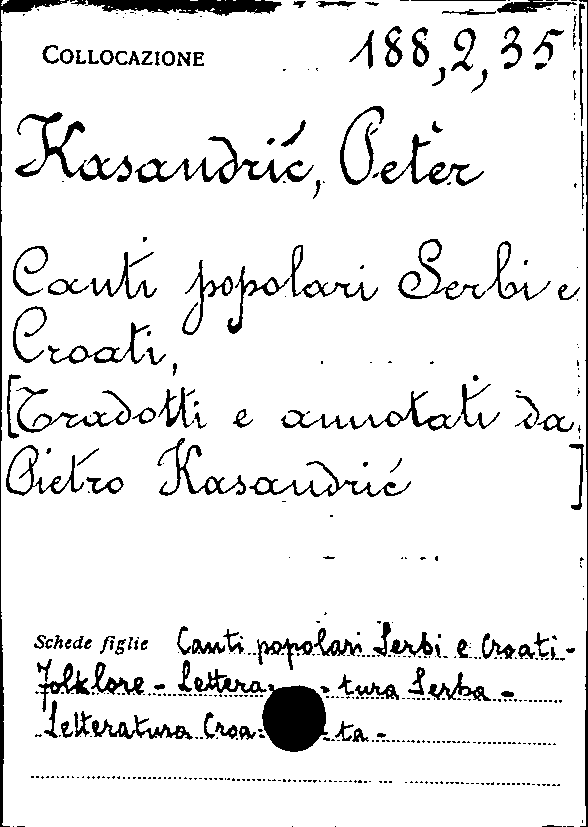 COLLOCAZIONE 188,2,35
Kasandrić, Peter
Canti popolari Serbi e
Croati,
[Tradotti e annotati da
Pietro Kasandrić]
Schede figlie Canti popolari Serbi e Croati -
Folklore - Lettera= =tura Serba -
Letteratura Croa= ta -